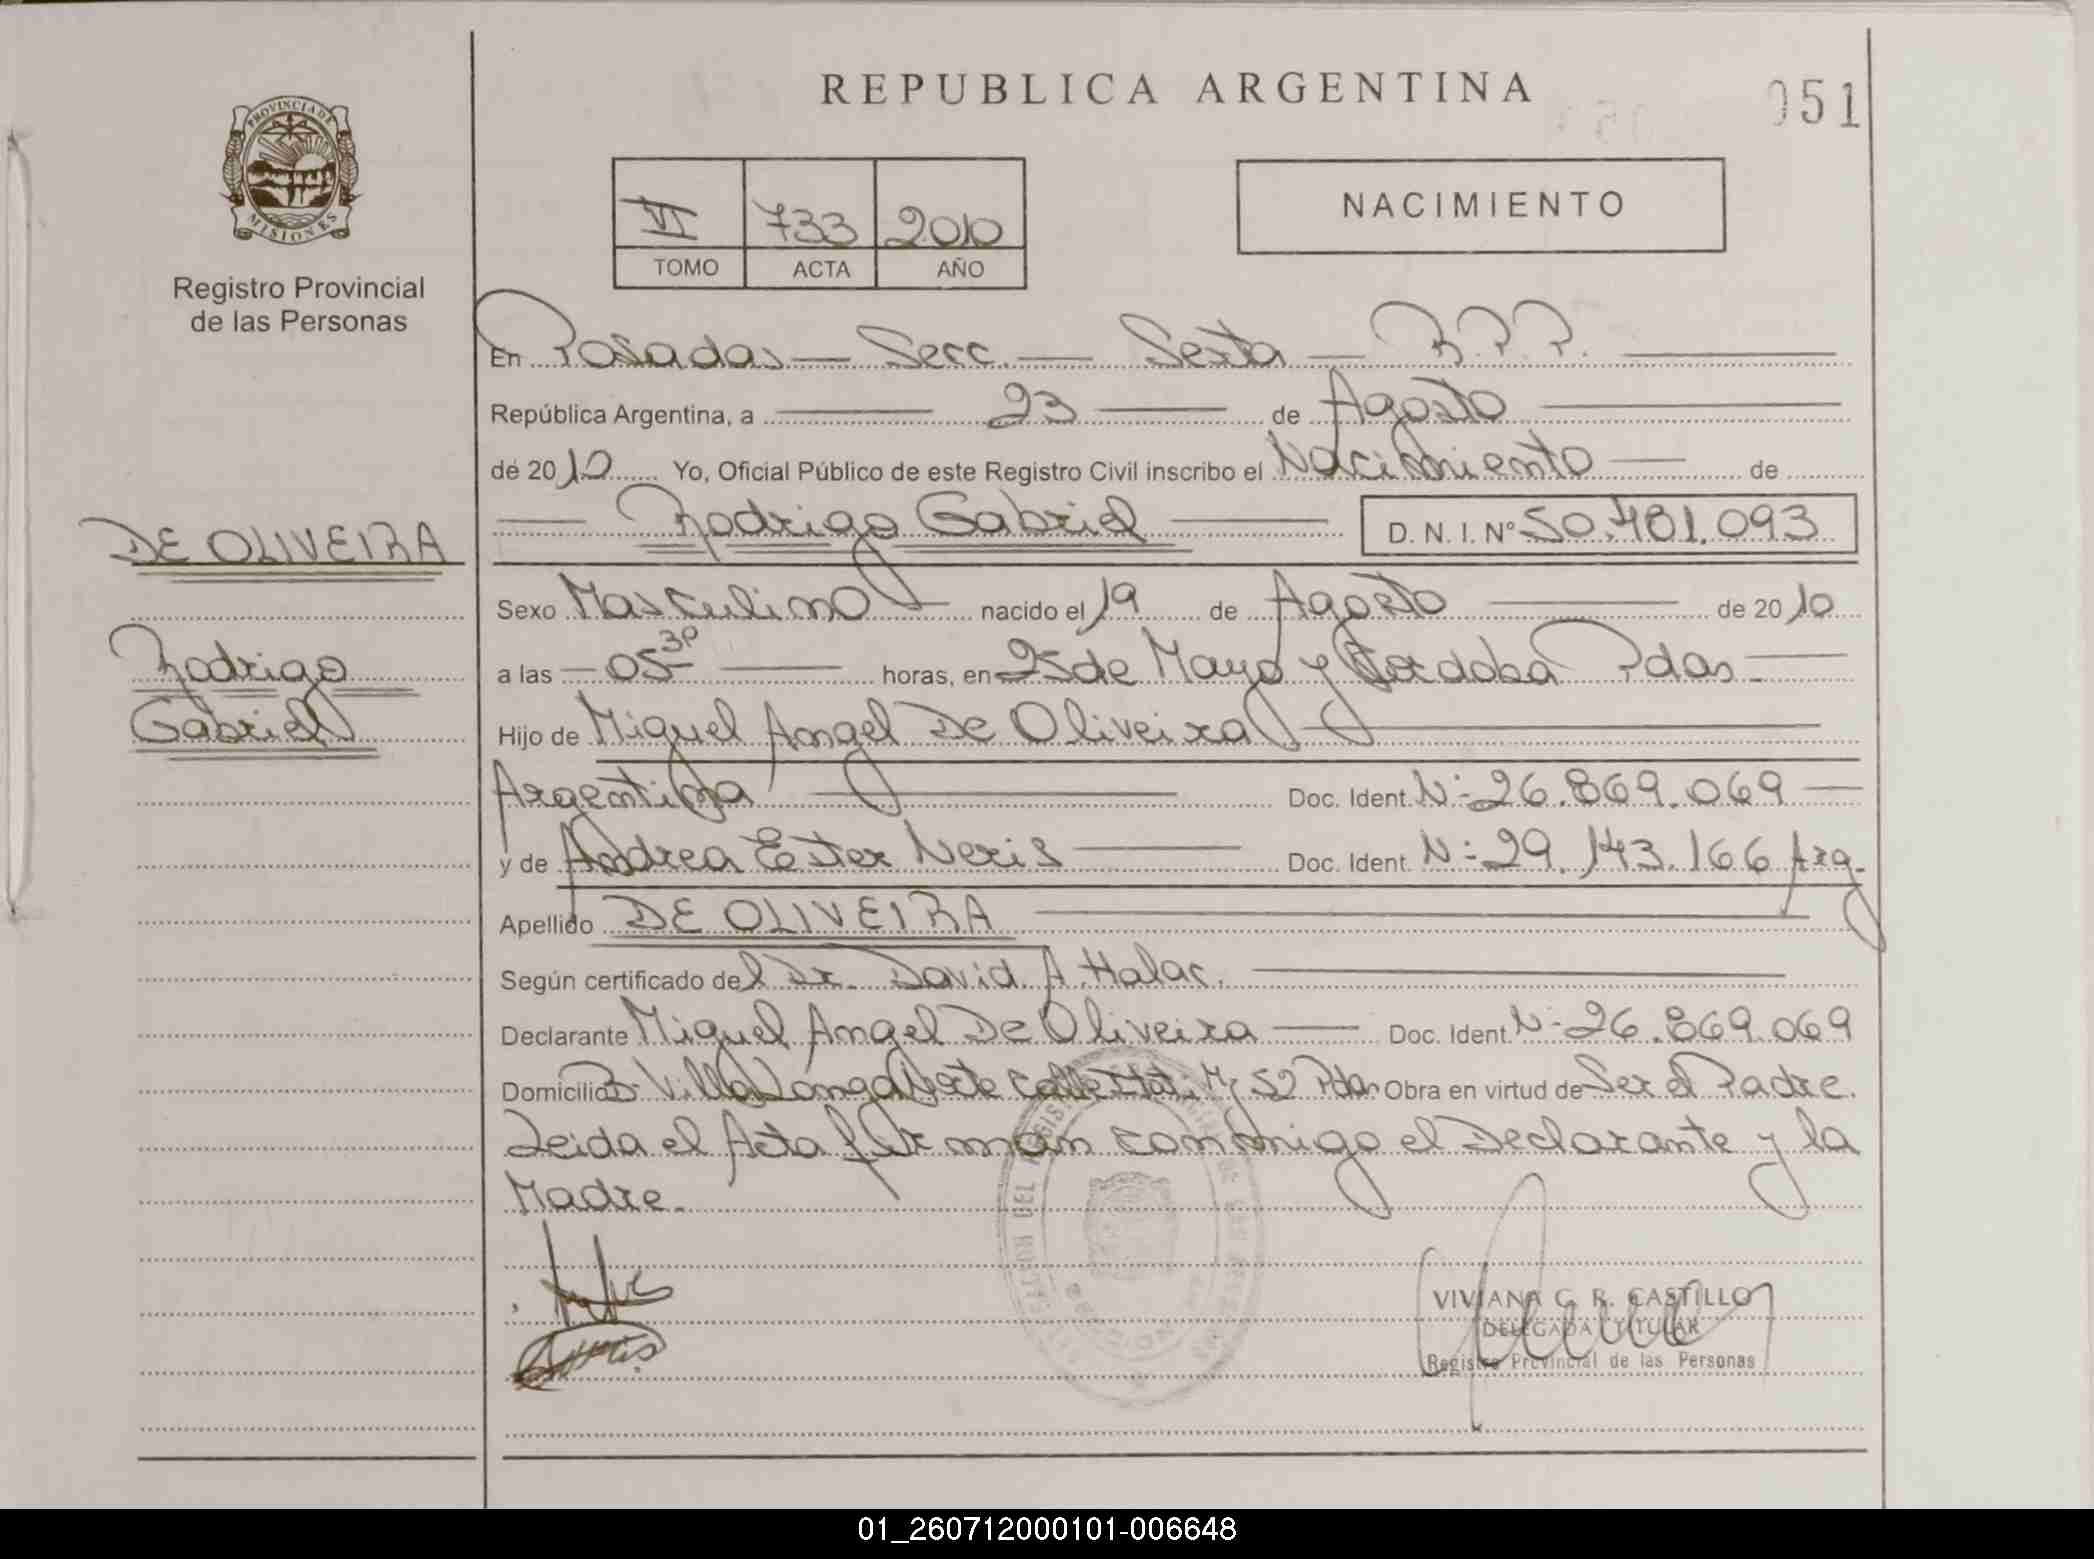 PROVINCIA DE
MISIONES
Registro Provincial
de las Personas
DE OLIVEIRA
Rodrigo
Gabriel
REPUBLICA ARGENTINA
051
VI 733 2010
TOMO ACTA AÑO
NACIMIENTO
En Posadas — Secc. — Sexta — R.P.P.
República Argentina, a 23 de Agosto
de 2010 Yo, Oficial Público de este Registro Civil inscribo el Nacimiento de
Rodrigo Gabriel D. N. I. Nº 50.481.093
Sexo Masculino nacido el 19 de Agosto de 2010
a las 05 30 horas, en 25 de Mayo y Cordoba Pdas.
Hijo de Miguel Angel De Oliveira
Argentina Doc. Ident. Nº 26.869.069
y de Andrea Ester Neris Doc. Ident. Nº 29.143.166 Arg.
Apellido DE OLIVEIRA
Según certificado del Dr. David A. Halac.
Declarante Miguel Angel De Oliveira Doc. Ident. Nº 26.869.069
Domicilio Bº Villa Longa Pdas Obra en virtud de Ser el Padre.
Leida el Acta firman conmigo el Declarante y la
Madre.
VIVIANA G. R. CASTILLO
DELEGADA TITULAR
Registro Provincial de las Personas
01_260712000101-006648